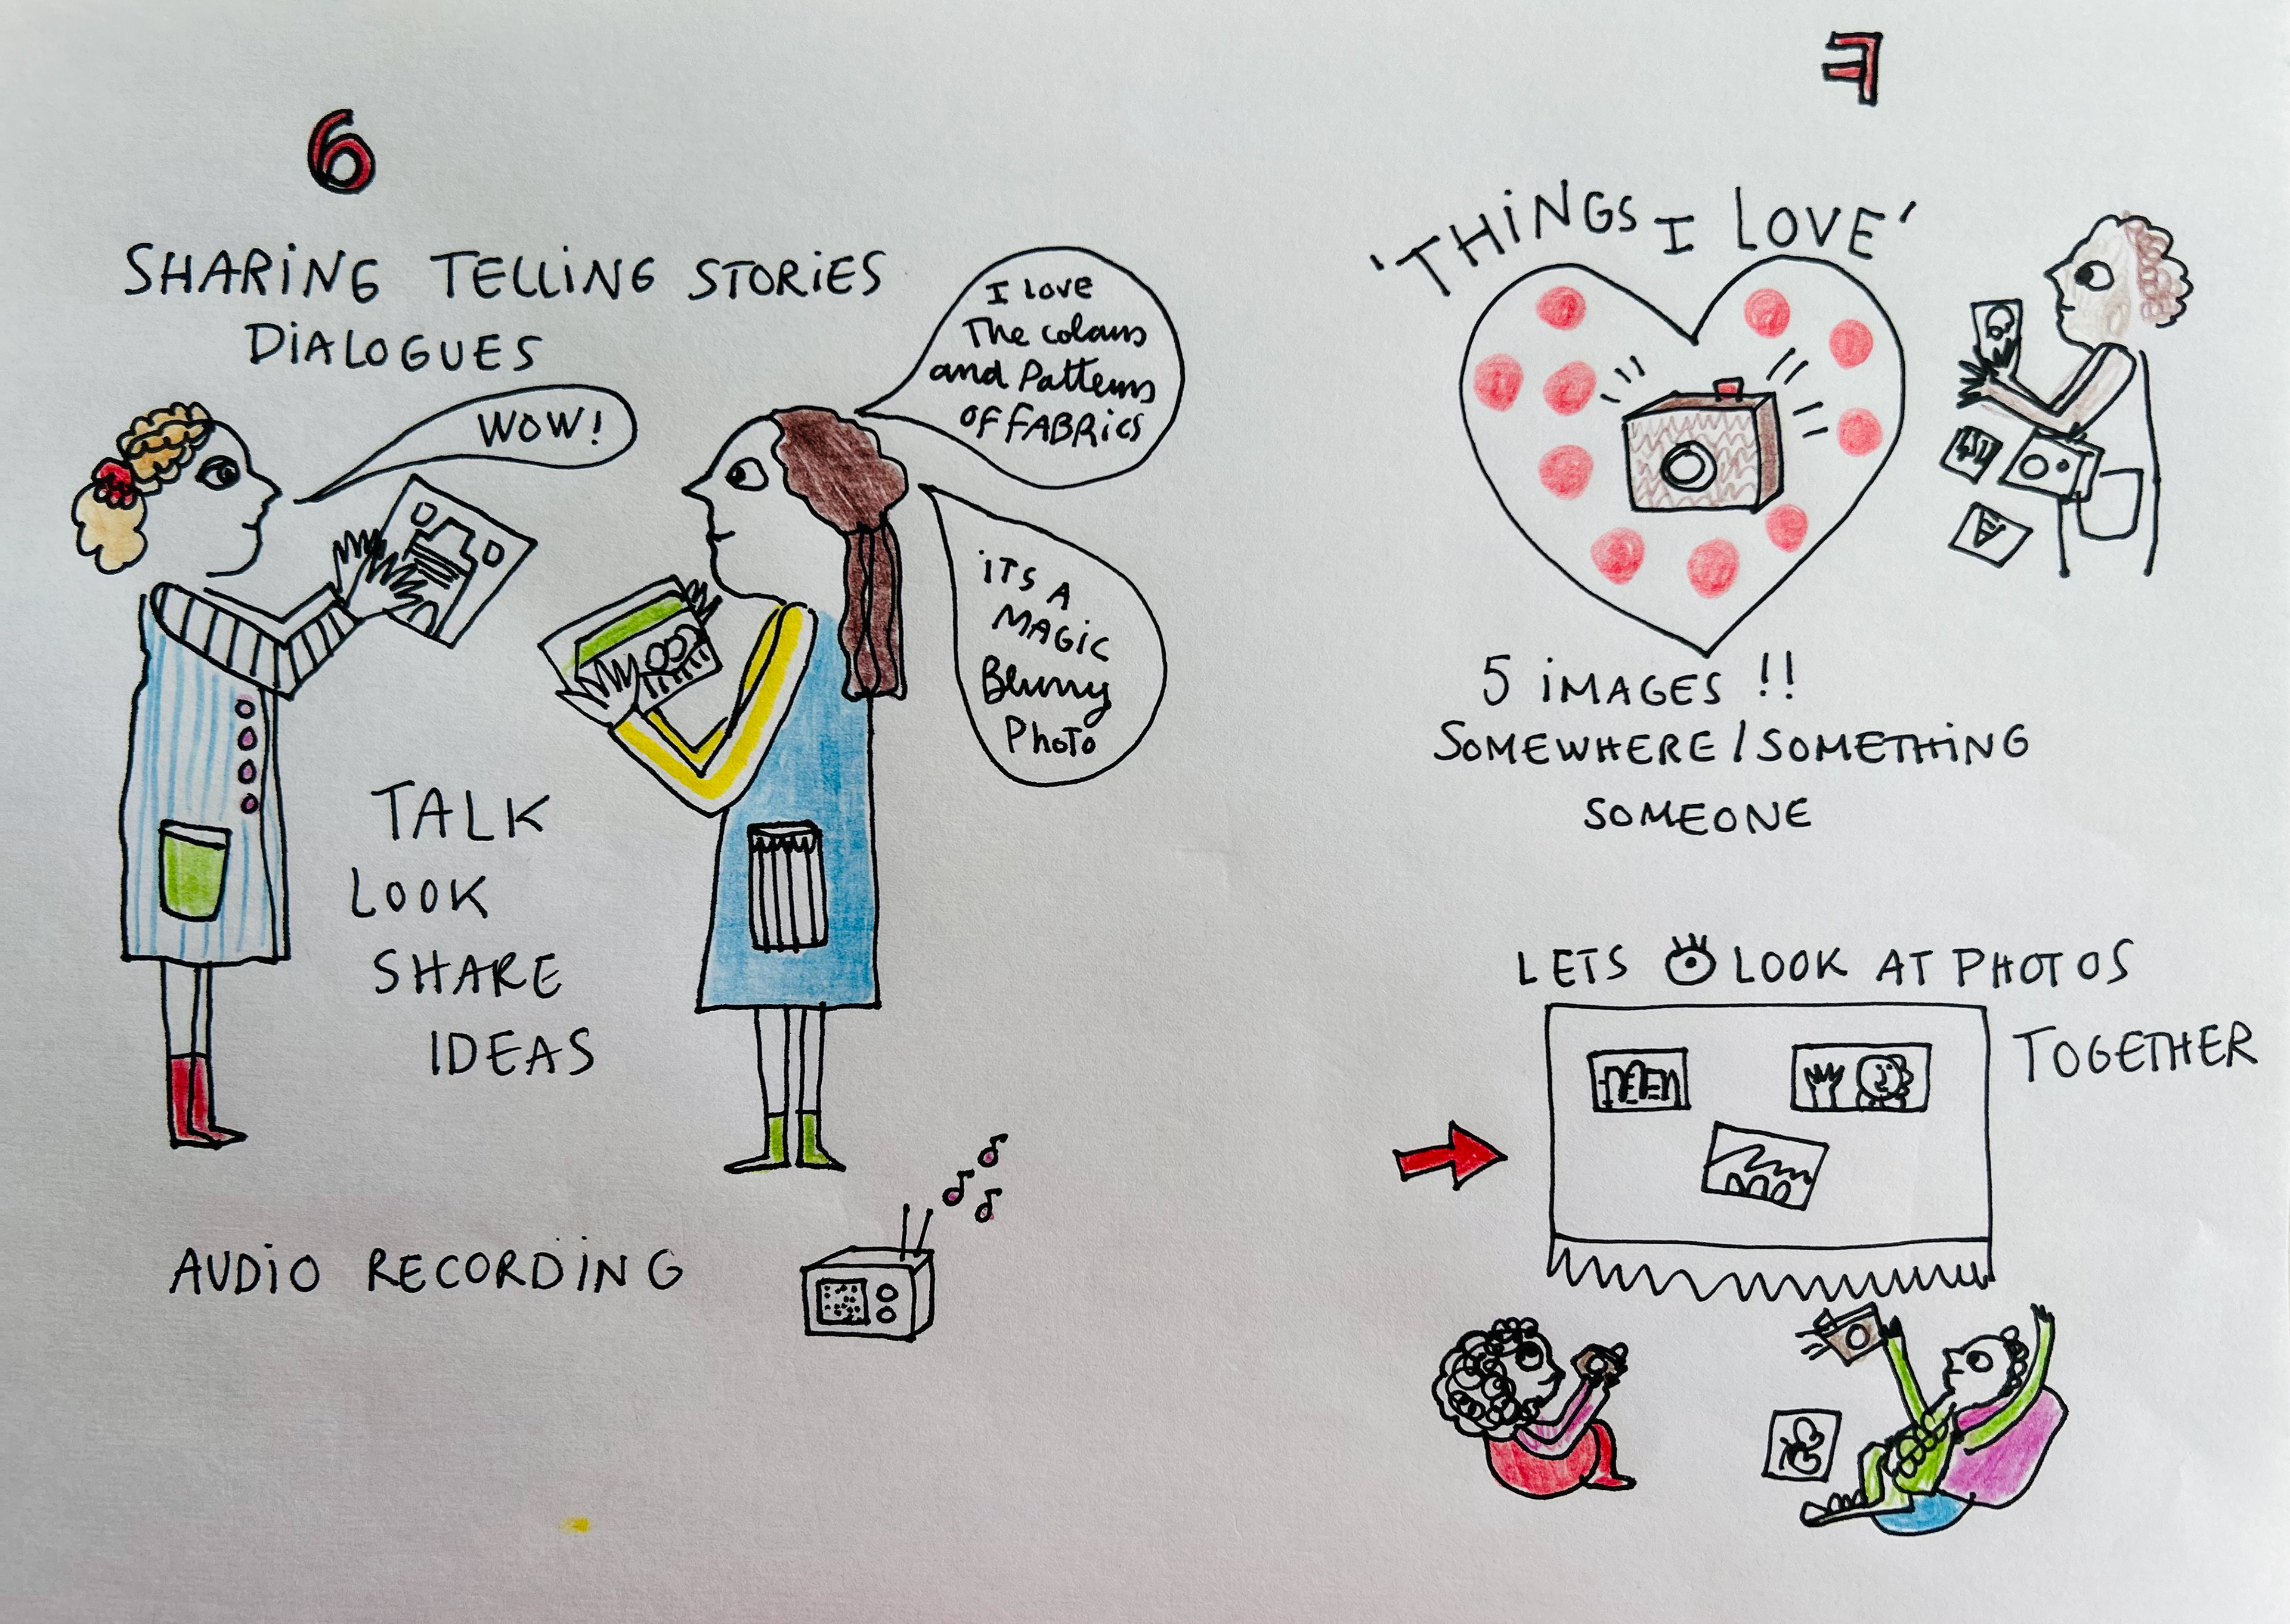 6
SHARING TELLING STORIES
DIALOGUES
WOW!
I love
The colours
and Patterns
OF FABRICS
ITS A
MAGIC
Blurry
PHOTO
TALK
LOOK
SHARE
IDEAS
AUDIO RECORDING
7
'THINGS I LOVE'
5 IMAGES !!
SOMEWHERE / SOMETHING
SOMEONE
LETS LOOK AT PHOTOS
TOGETHER